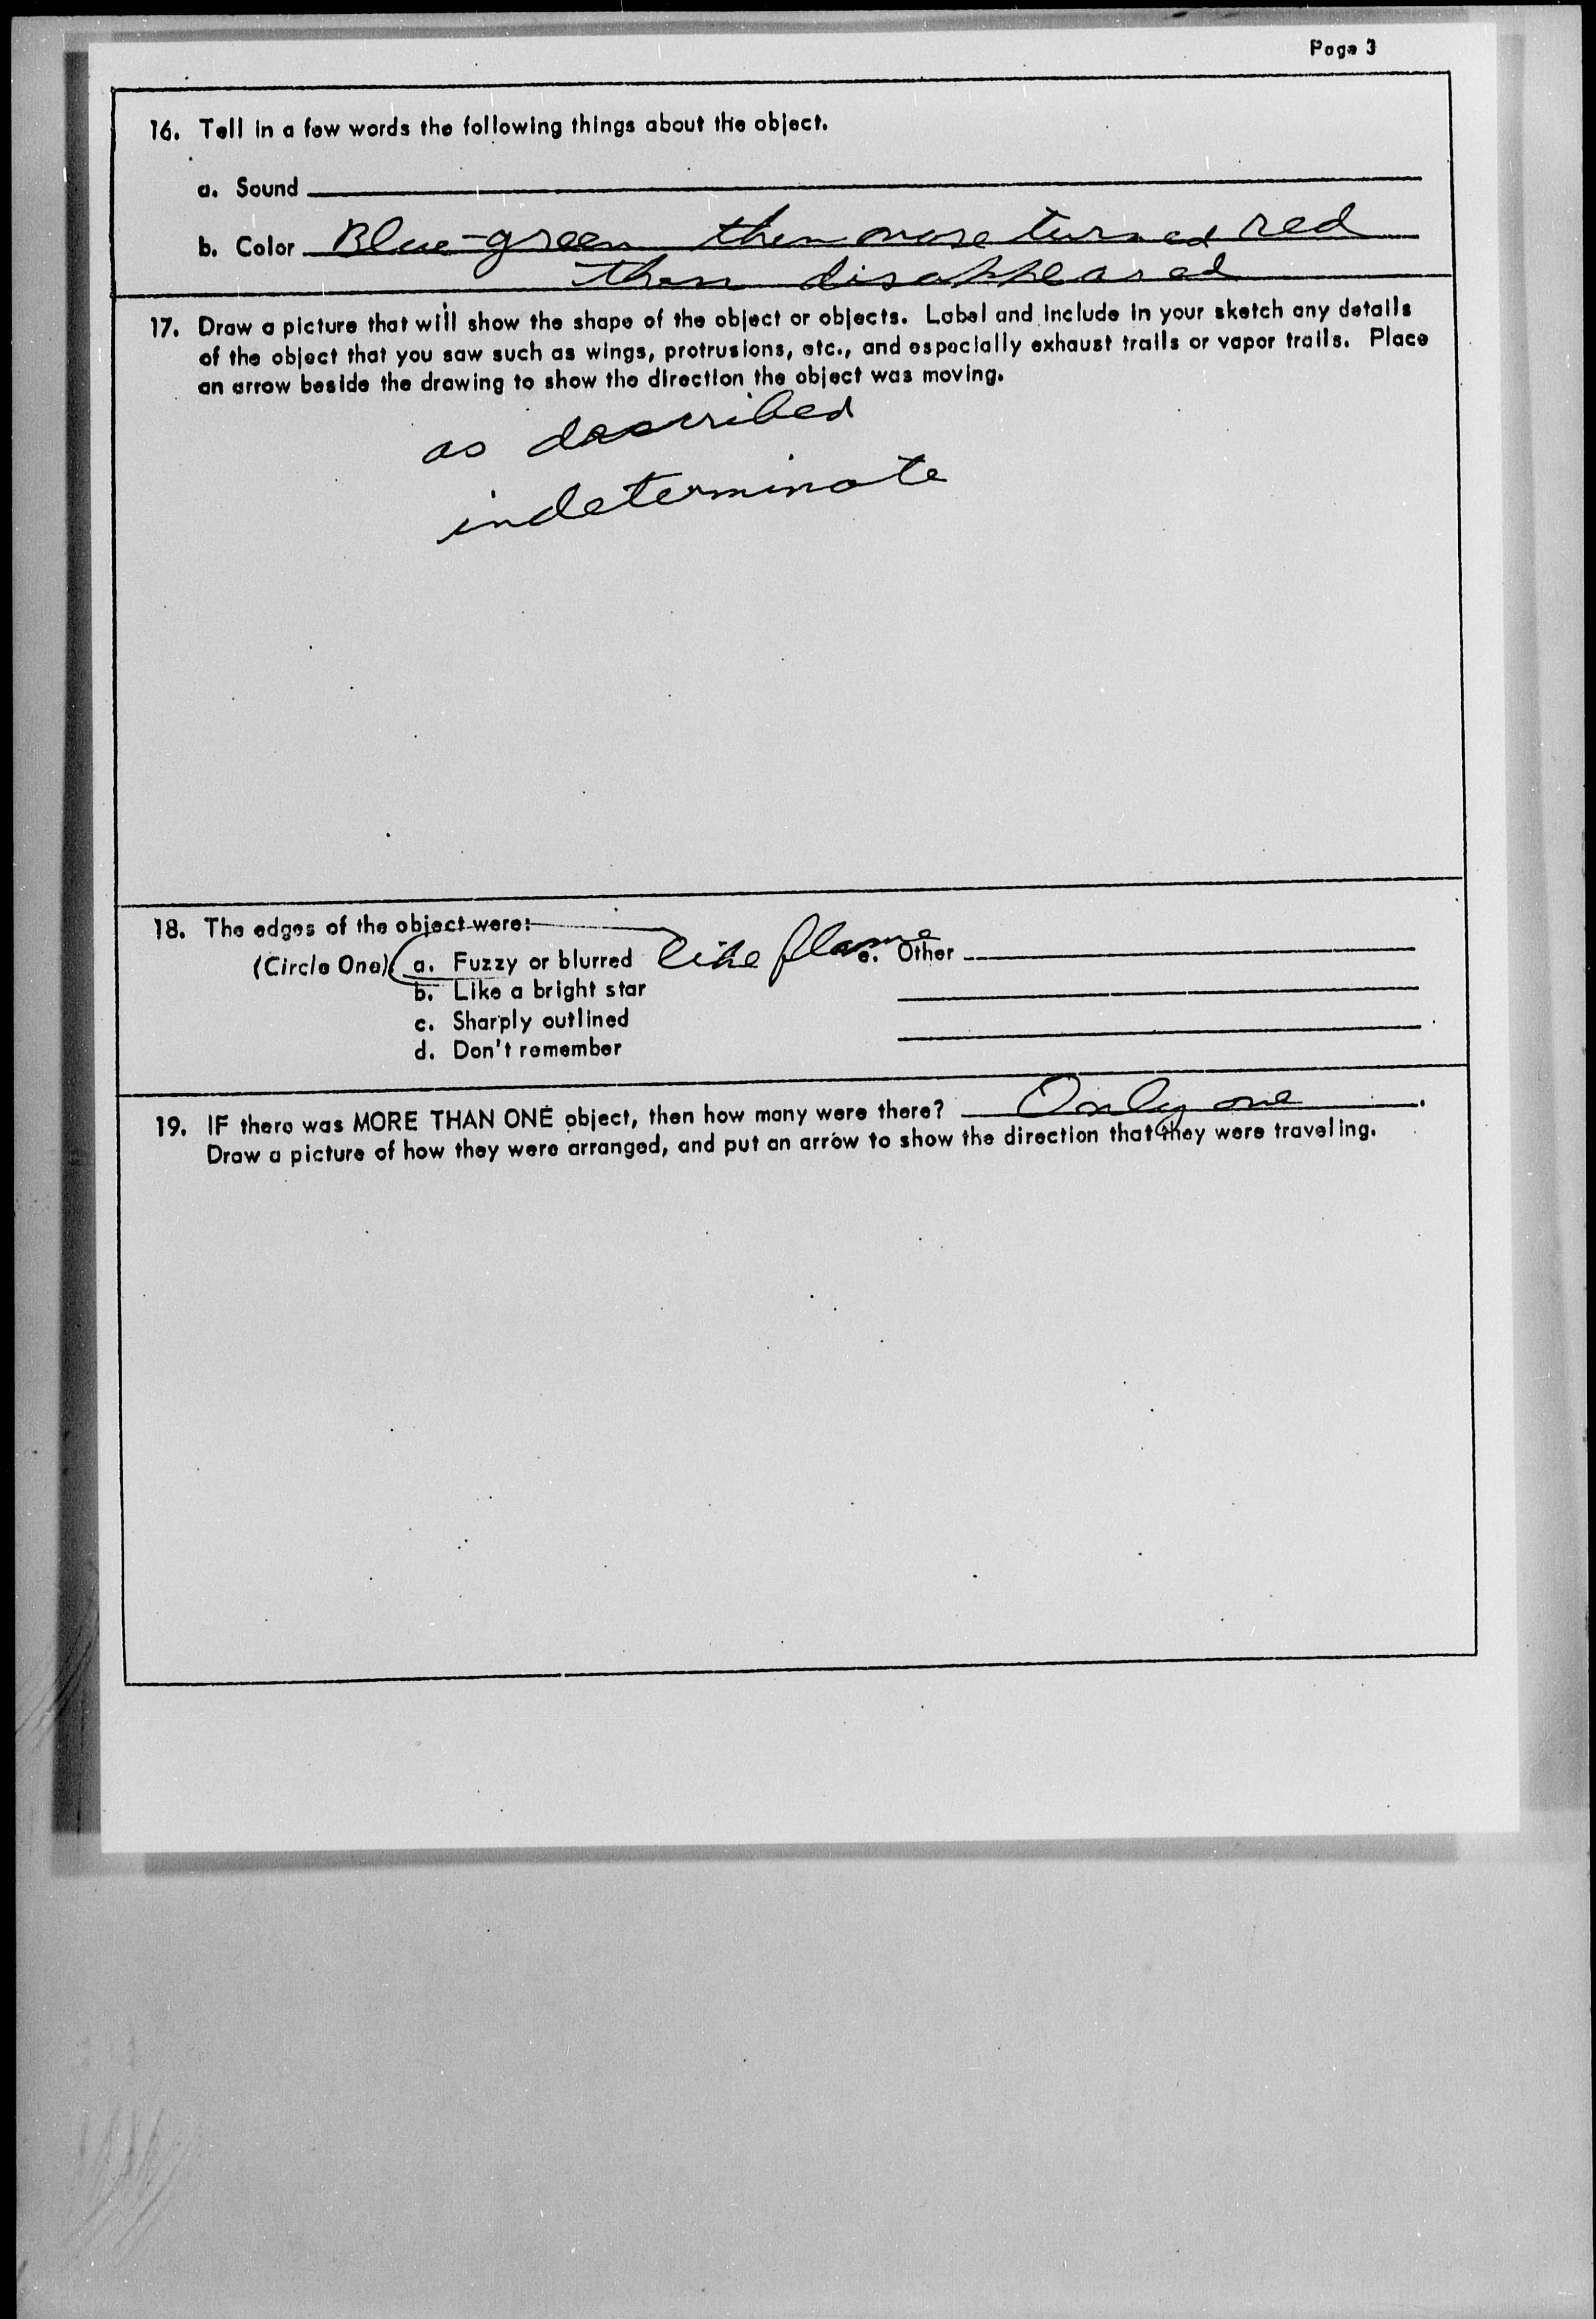 Page 3
16. Tell in a few words the following things about the object.
a. Sound
b. Color Blue-green then nose turned red
then disappeared
17. Draw a picture that will show the shape of the object or objects. Label and include in your sketch any details
of the object that you saw such as wings, protrusions, etc., and especially exhaust trails or vapor trails. Place
an arrow beside the drawing to show the direction the object was moving.
as described
indeterminate
18. The edges of the object were:
(Circle One): a. Fuzzy or blurred like flame e. Other
b. Like a bright star
c. Sharply outlined
d. Don't remember
19. IF there was MORE THAN ONE object, then how many were there? Only one.
Draw a picture of how they were arranged, and put an arrow to show the direction that they were traveling.